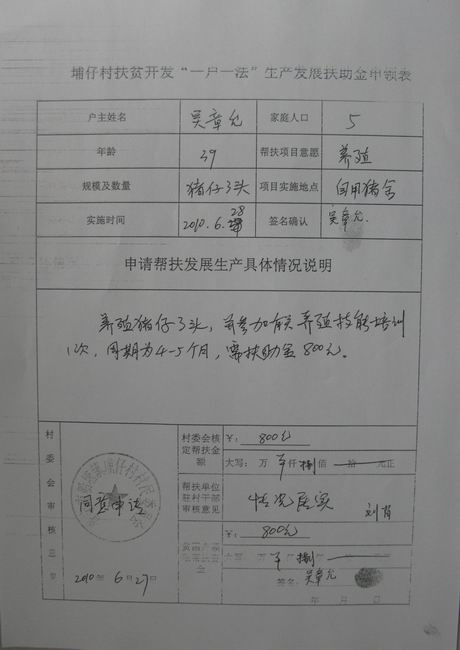 埔仔村扶贫开发“一户一法”生产发展扶助金申领表
户主姓名 吴章允 家庭人口 5
年龄 39 帮扶项目意愿 养殖
规模及数量 猪仔3头 项目实施地点 自用猪舍
实施时间 2010.6.28 签名确认 吴章允
申请帮扶发展生产具体情况说明
养殖猪仔3头，曾参加有关养殖技能培训
1次，周期为4-5个月，需扶助金800元。
村委会审核意见
同意申请
2010年6月27
村委会核定帮扶金额
￥：800元
大写： 万 仟 捌 佰 拾 元正
帮扶单位驻村干部审核意见
情况属实 刘肖
￥：800元
大写： 万 仟 捌
签名：吴章允
年 月 日